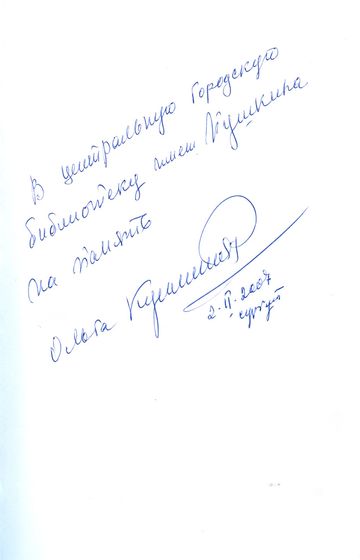 В центральную городскую
библиотеку имени Пушкина
на память
Ольга
2.II.2007
Сургут